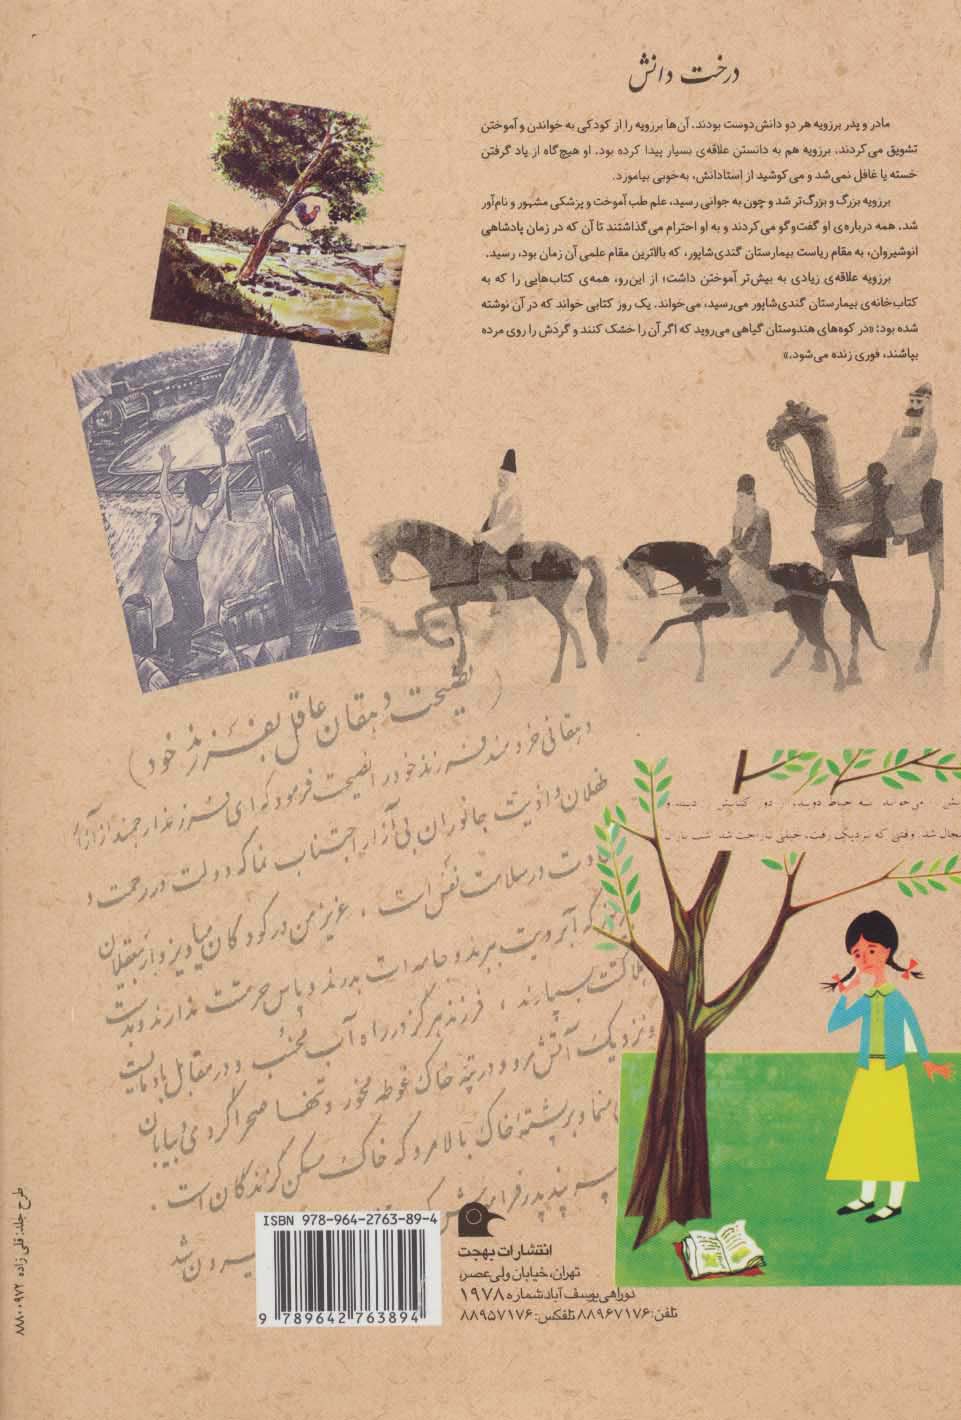 درخت دانش
مادر و پدر برزویه هر دو دانش‌دوست بودند. آن‌ها برزویه را از کودکی به خواندن و آموختن
تشویق می‌کردند. برزویه هم به دانستن علاقه‌ی بسیار پیدا کرده بود. او هیچ‌گاه از یاد گرفتن
خسته یا غافل نمی‌شد و می‌کوشید از استادانش، به‌خوبی بیاموزد.
برزویه بزرگ و بزرگ‌تر شد و چون به جوانی رسید، علم طب آموخت و پزشکی مشهور و نام‌آور
شد. همه درباره‌ی او گفت‌وگو می‌کردند و به او احترام می‌گذاشتند تا آن که در زمان پادشاهی
انوشیروان، به مقام ریاست بیمارستان گندی‌شاپور، که بالاترین مقام علمی آن زمان بود، رسید.
برزویه علاقه‌ی زیادی به بیش‌تر آموختن داشت؛ از این‌رو، همه‌ی کتاب‌هایی را که به
کتاب‌خانه‌ی بیمارستان گندی‌شاپور می‌رسید، می‌خواند. یک روز کتابی خواند که در آن نوشته
شده بود: «در کوه‌های هندوستان گیاهی می‌روید که اگر آن را خشک کنند و گردش را روی مرده
بپاشند، فوری زنده می‌شود.»
(نصیحت دهقان عاقل بفرزند خود)
دهقانی خردمند فرزند خود را نصیحت فرمود که ای فرزند از
طفلان و اذیت جانوران بی‌آزار اجتناب نما که دولت در رحمت و
در سلامت نفس است . عزیز من در کودکان میاویز و از بیعقلان
که آبرویت ببرند و جامه‌ات بدرند و پاس حرمتت ندارند و بدست
بسپارند ، فرزند هرگز در راه آب مخسب و در مقابل باد مایست
و نزدیک آتش مرو و در تپه خاک غوطه مخور و تنها صحراگردی و بیابان
منما و بر پشته خاک بالا مرو که خاک مسکن گزندگان است .
پسر پند پدر
می‌خواند. به حیاط دوید، از دور کتابش را دید و
شد. وقتی که نزدیک رفت، خیلی ناراحت شد. شب باران
ISBN 978-964-2763-89-4
9 789642 763894
انتشارات بهجت
تهران، خیابان ولی‌عصر،
دوراهی یوسف آباد، شماره ۱۹۷۸
تلفن: ۸۸۹۶۷۱۷۶ تلفکس: ۸۸۹۵۷۱۷۶
طرح جلد: قلی زاده ۸۸۸۰۰۹۷۲